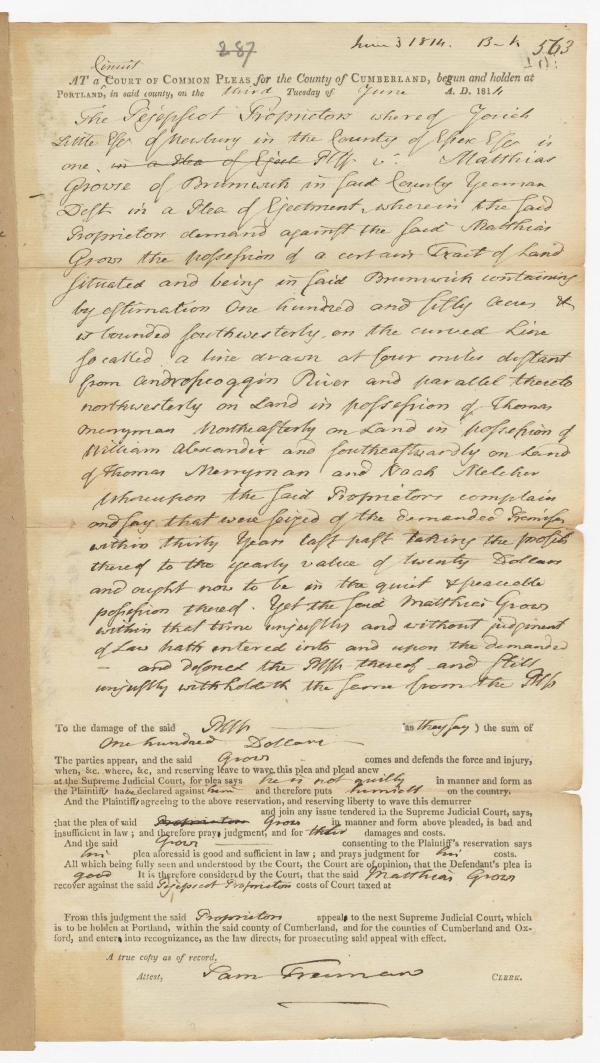 287
June 3 1814. B-k 563
Circuit
AT a COURT OF COMMON PLEAS for the County of CUMBERLAND, begun and holden at
PORTLAND, in said county, on the third Tuesday of June A. D. 1814
The Pejepscot Proprietors whereof Josiah
Little Esqr of Newbury in the County of Essex Esqr is
one, in a Plea of Eject Plffs v. Matthias
Growse of Brunswick in said County Yeoman
Deft in a Plea of Ejectment, wherein the said
Proprietors demand against the said Matthias
Grows the possession of a certain Tract of Land
situated and being in said Brunswick containing
by estimation One hundred and fifty acres &
is bounded southwesterly on the curved Line
so called a line drawn at four miles distant
from Androscoggin River and parallel thereto
northwesterly on Land in possession of Thomas
Merryman Northeasterly on Land in possession of
William Alexander and southeastwardly on Land
of Thomas Merryman and Noah Melcher
Whereupon the said Proprietors complain
and say that were seized of the demanded Premises
within thirty Years last past taking the profits
thereof to the yearly value of twenty Dollars
and ought now to be in the quiet & peaceable
possession thereof. Yet the said Matthias Grows
within that time unjustly and without judgment
of Law hath entered into and upon the demanded
— and deforced the Plffs thereof and still
unjustly withholdeth the same from the Plffs
To the damage of the said Plffs (as they say) the sum of
One hundred Dollars
The parties appear, and the said Grows comes and defends the force and injury,
when, &c. where, &c, and reserving leave to wave this plea and plead anew
at the Supreme Judicial Court, for plea says he is not guilty in manner and form as
the Plaintiffs have declared against him and therefore puts himself on the country.
And the Plaintiffs agreeing to the above reservation, and reserving liberty to wave this demurrer
and join any issue tendered in the Supreme Judicial Court, says,
that the plea of said Proprietors Grows in manner and form above pleaded, is bad and
insufficient in law; and therefore pray judgment, and for their damages and costs.
And the said Grows consenting to the Plaintiff's reservation says
his plea aforesaid is good and sufficient in law; and prays judgment for his costs.
All which being fully seen and understood by the Court, the Court are of opinion, that the Defendant's plea is
good It is therefore considered by the Court, that the said Matthias Grows
recover against the said Pejepscot Proprietors costs of Court taxed at
From this judgment the said Proprietors appeal to the next Supreme Judicial Court, which
is to be holden at Portland, within the said county of Cumberland, and for the counties of Cumberland and Ox-
ford, and enter into recognizance, as the law directs, for prosecuting said appeal with effect.
A true copy as of record,
Attest, Sam Freeman CLERK.